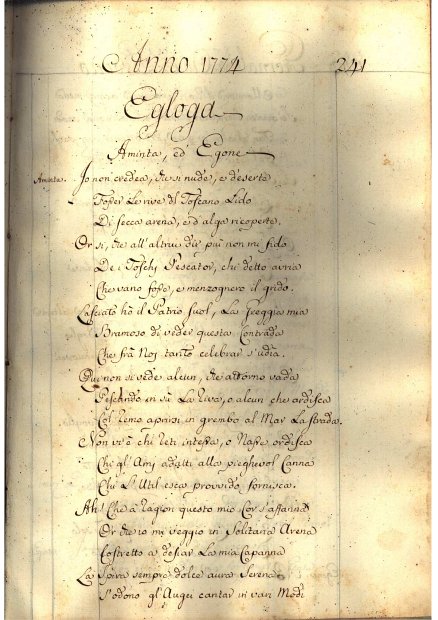 Anno 1774 241
Egloga
Aminta, ed Egone
Aminta. Io non credea, che sì nude, e deserte
Fosser le rive del Toscano Lido
Di secca arena, e d'alga ricoperte.
Or sì, che all'altrui dir più non mi fido
De i Toschi Pescator, chi detto avria
Che vano fosse, e menzognero il grido.
Lasciato hò il Patrio suol, la greggia mia
Bramoso di veder questa Contrada
Che frà Noi tanto celebrar s'udìa.
Quì non si vede alcun, che attorno vada
Pescando in sù la Riva, o alcun che ardisca
Col Remo aprirsi in grembo al Mar la strada.
Non vi è chi reti intessa, o Nasse ordisca
Chi gl'Ami adatti alla pieghevol Canna
Chi l'Util esca provvido fornisca.
Ah! Che a ragion questo mio Cor s'affanna
Or che io mi veggio in Solitaria Arena
Costretto a desiar la mia Capanna
Là spira sempre dolce aura serena
S'odono gl'Augei cantar in vari Modi